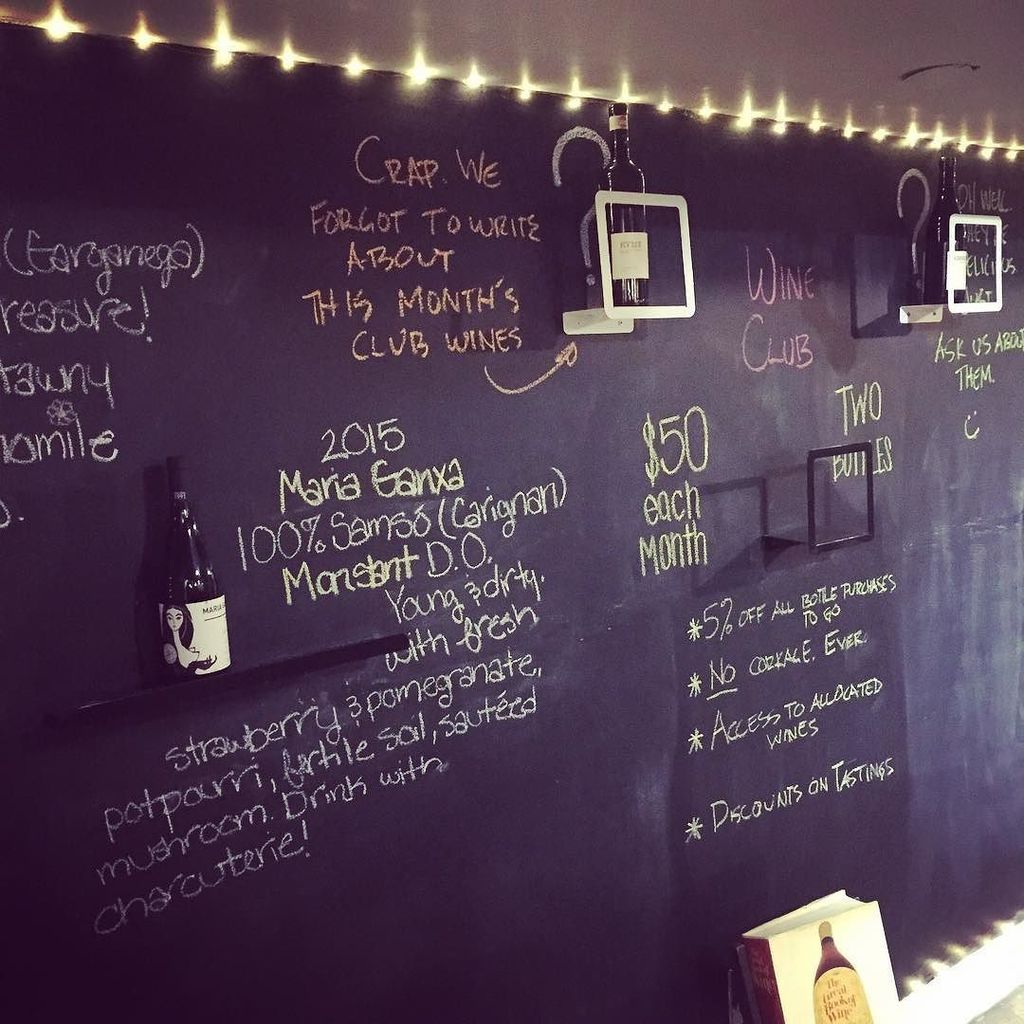 (Garganega)
reasure!
tawny
omile
CRAP. WE
FORGOT TO WRITE
ABOUT
THIS MONTH'S
CLUB WINES
?
2015
Maria Ganxa
100% Samsó (Carignan)
Monstant D.O.
Young & dirty.
with fresh
strawberry & pomegranate,
potpourri, fertile soil, sautéed
mushroom. Drink with
charcuterie!
MARIA
WINE
CLUB
$50
each
Month
TWO
BOTTLES
*5% OFF ALL BOTTLE PURCHASES
TO GO
* NO CORKAGE. EVER.
* ACCESS TO ALLOCATED
WINES
* DISCOUNTS ON TASTINGS
?
OH WELL.
THEY'RE
ELICIOUS
JUST
ASK US ABOU
THEM.
The
Great
Book of
Wine